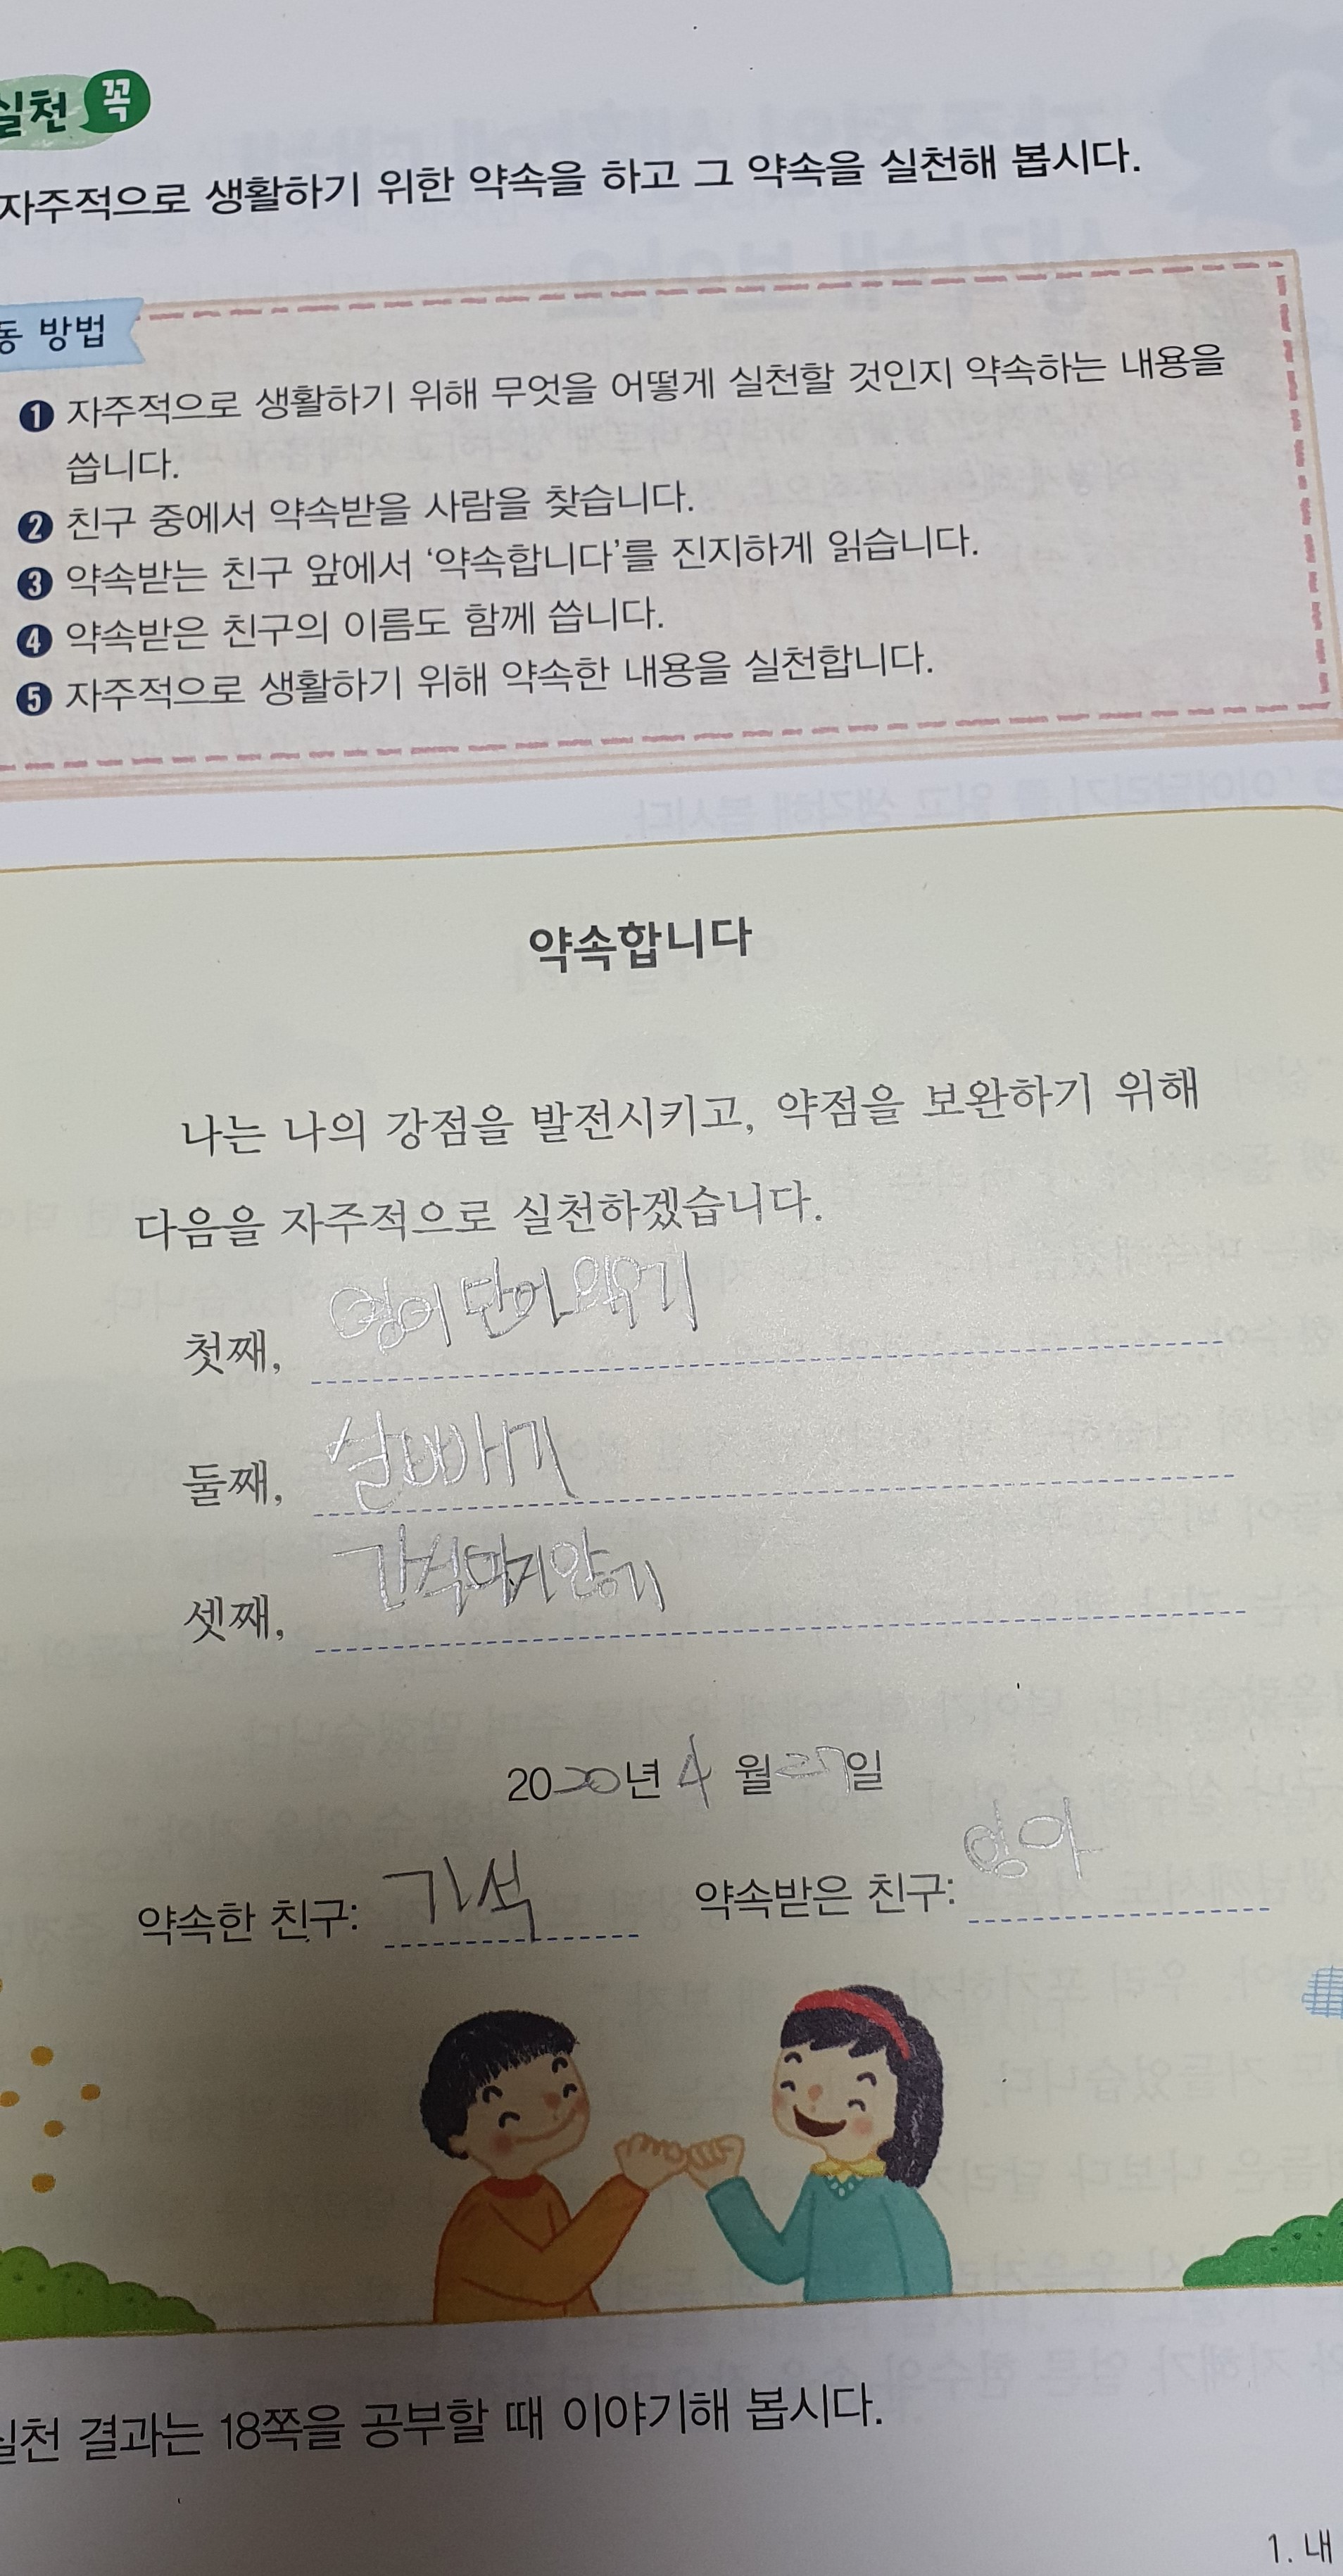 실천 꼭
자주적으로 생활하기 위한 약속을 하고 그 약속을 실천해 봅시다.
동 방법
1 자주적으로 생활하기 위해 무엇을 어떻게 실천할 것인지 약속하는 내용을
씁니다.
2 친구 중에서 약속받을 사람을 찾습니다.
3 약속받는 친구 앞에서 ‘약속합니다’를 진지하게 읽습니다.
4 약속받은 친구의 이름도 함께 씁니다.
5 자주적으로 생활하기 위해 약속한 내용을 실천합니다.
약속합니다
나는 나의 강점을 발전시키고, 약점을 보완하기 위해
다음을 자주적으로 실천하겠습니다.
첫째, 영어 단어 외우기
둘째, 살빼기
셋째, 간식먹지않기
2020년 4월 27일
약속한 친구: 기석 약속받은 친구: 영아
실천 결과는 18쪽을 공부할 때 이야기해 봅시다.
1. 내